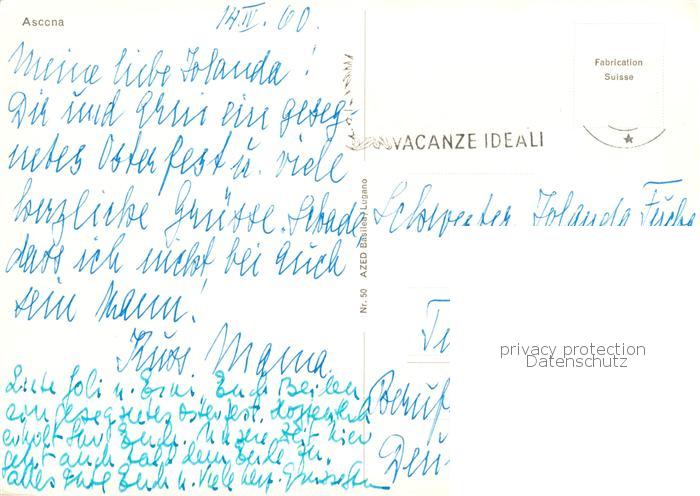 Ascona
14.IV.60.
Meine liebe Jolanda!
Dir und Erni ein geseg-
netes Osterfest u. viele
herzliche Grüsse. Schade
dass ich nicht bei Euch
sein kann!
Kuss. Mama.
Liebe Joli u. Erni. Euch Beiden
ein gesegnetes Osterfest. Hoffentlich
erholt Ihr Euch. Unsere Zeit hier
geht auch bald dem Ende zu.
alles Gute Euch u. viele herz. Grüsse
Nr. 50 AZED Basilea/Lugano
Fabrication
Suisse
VACANZE IDEALI
Schwester Jolanda Fuchs
privacy protection
Datenschutz